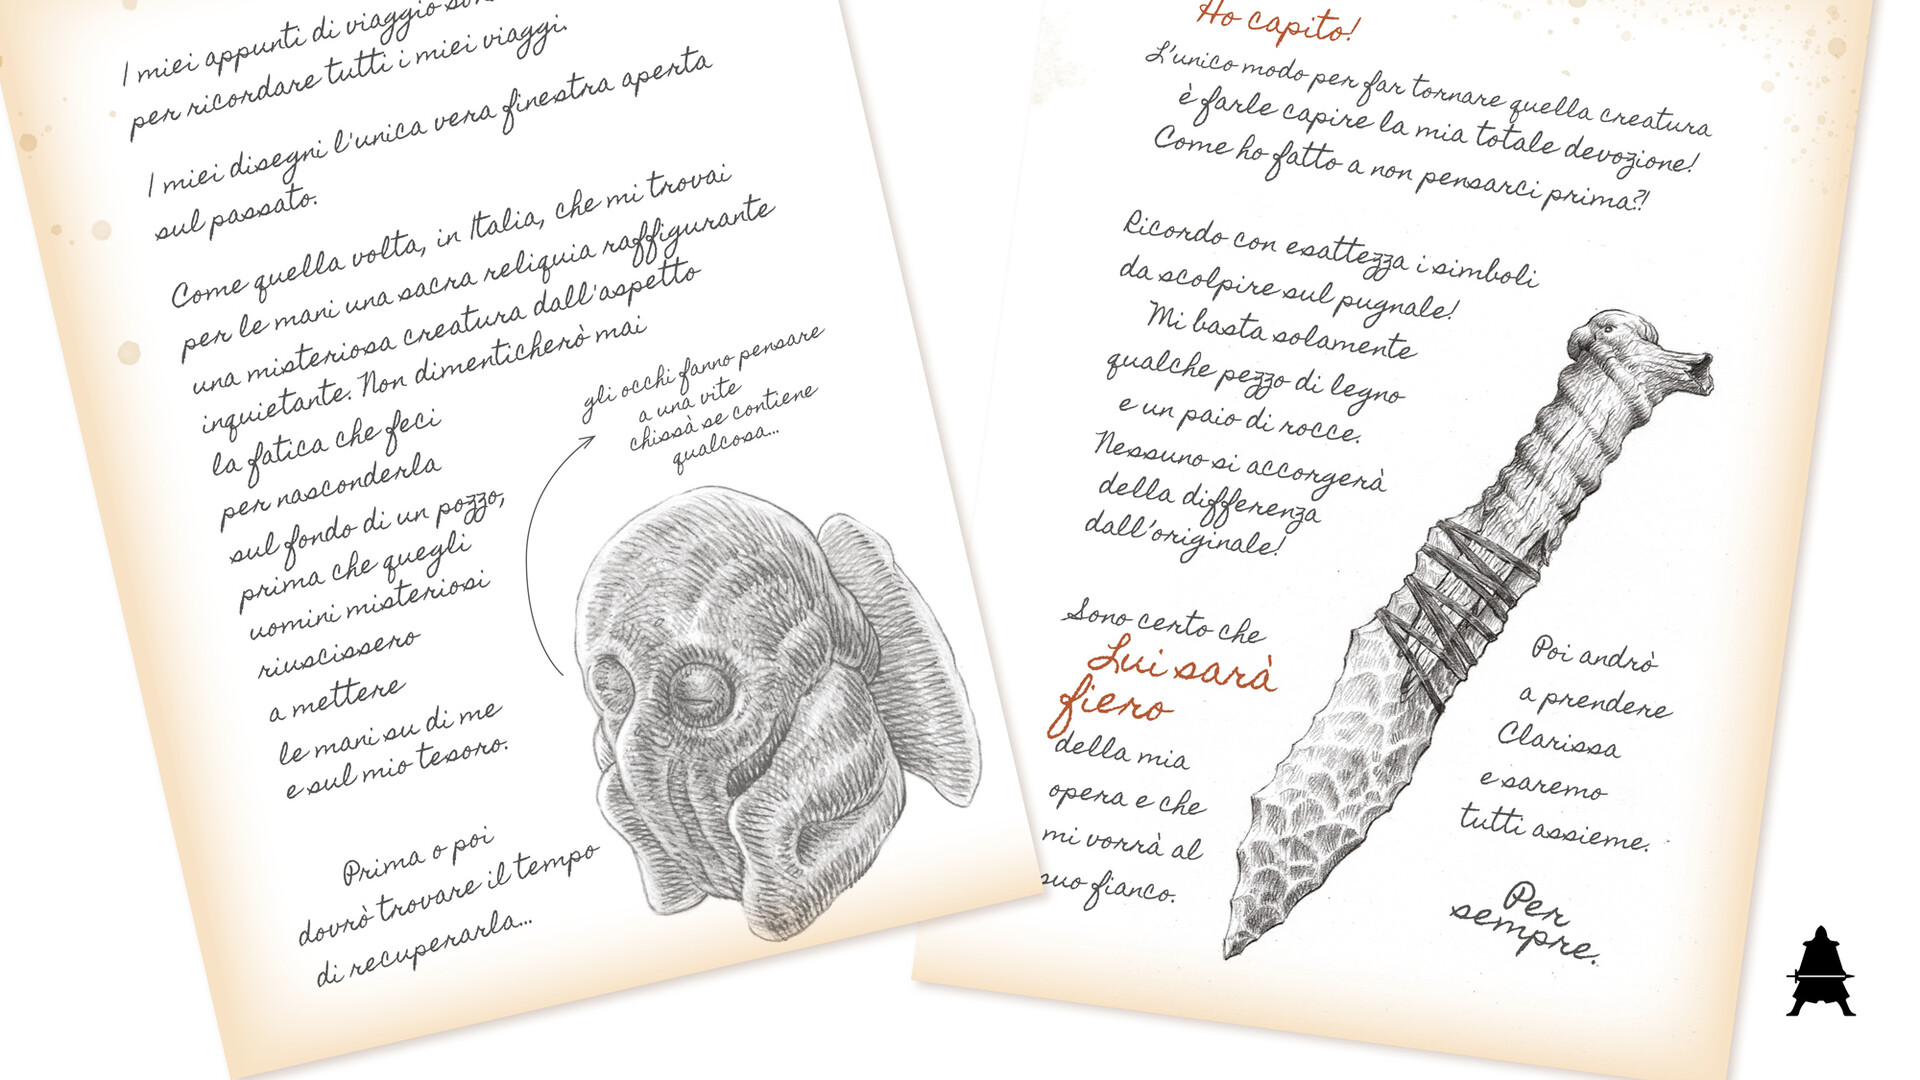 I miei appunti di viaggio
per ricordare tutti i miei viaggi.
I miei disegni l'unica vera finestra aperta
sul passato.
Come quella volta, in Italia, che mi trovai
per le mani una sacra reliquia raffigurante
una misteriosa creatura dall'aspetto
inquietante. Non dimenticherò mai
la fatica che feci
per nasconderla
sul fondo di un pozzo,
prima che quegli
uomini misteriosi
riuscissero
a mettere
le mani su di me
e sul mio tesoro.
Prima o poi
dovrò trovare il tempo
di recuperarla...
gli occhi fanno pensare
a una vite
chissà se contiene
qualcosa...
Ho capito!
L'unico modo per far tornare quella creatura
è farle capire la mia totale devozione!
Come ho fatto a non pensarci prima?!
Ricordo con esattezza i simboli
da scolpire sul pugnale!
Mi basta solamente
qualche pezzo di legno
e un paio di rocce.
Nessuno si accorgerà
della differenza
dall'originale!
Sono certo che
Lui sarà
fiero
della mia
opera e che
mi vorrà al
suo fianco.
Poi andrò
a prendere
Clarissa
e saremo
tutti assieme.
Per
sempre.